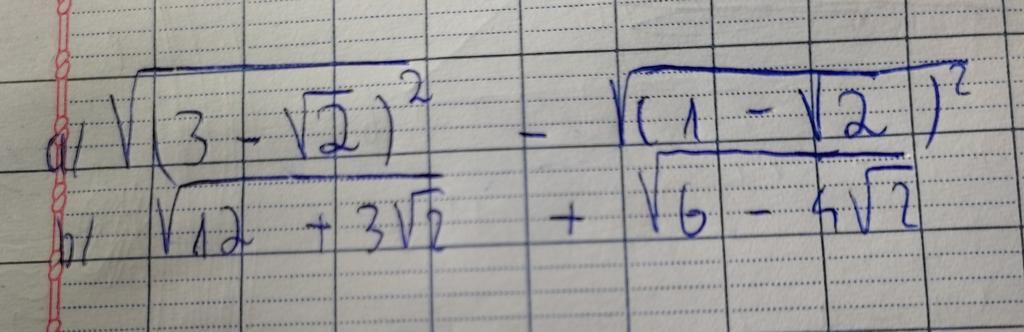 a/ √(3 - √2)² - √(1 - √2)²
b/ √12 + 3√2 + √6 - 4√2